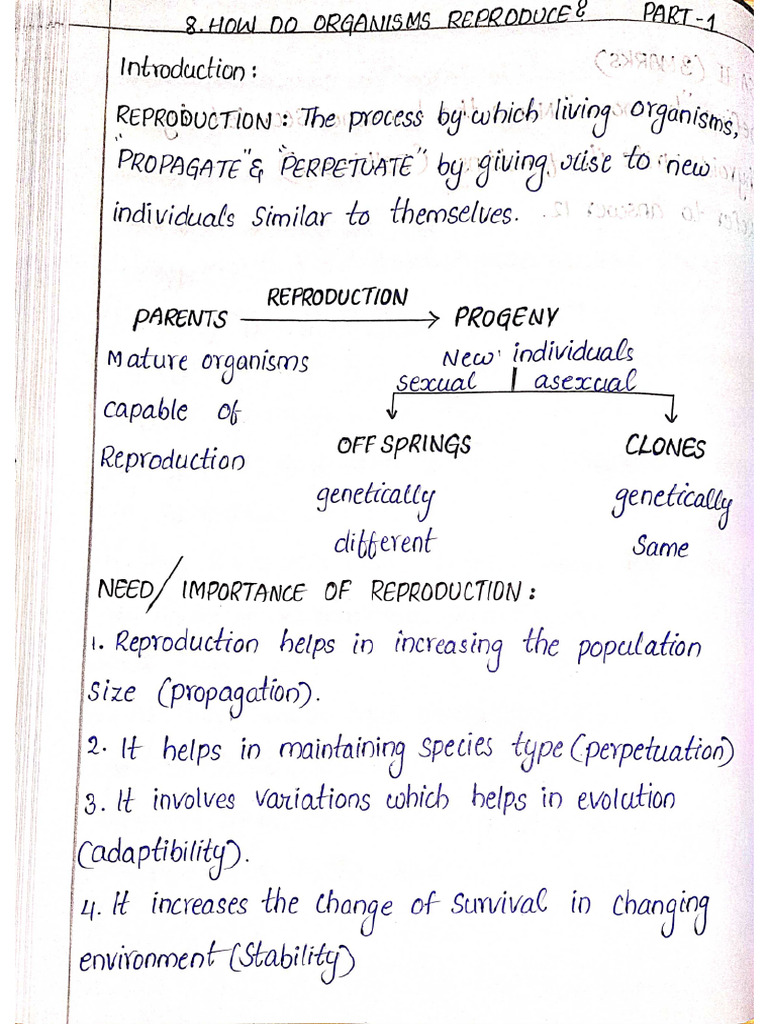 8. HOW DO ORGANISMS REPRODUCE? PART-1
Introduction:
REPRODUCTION: The process by which living organisms,
"PROPAGATE" & "PERPETUATE" by giving rise to new
individuals similar to themselves.
REPRODUCTION
PARENTS → PROGENY
Mature organisms New individuals
sexual | asexual
capable of
OFFSPRINGS CLONES
Reproduction
genetically genetically
different Same
NEED/IMPORTANCE OF REPRODUCTION:
1. Reproduction helps in increasing the population
size (propagation).
2. It helps in maintaining species type (perpetuation)
3. It involves variations which helps in evolution
(adaptibility).
4. It increases the change of survival in changing
environment (Stability)